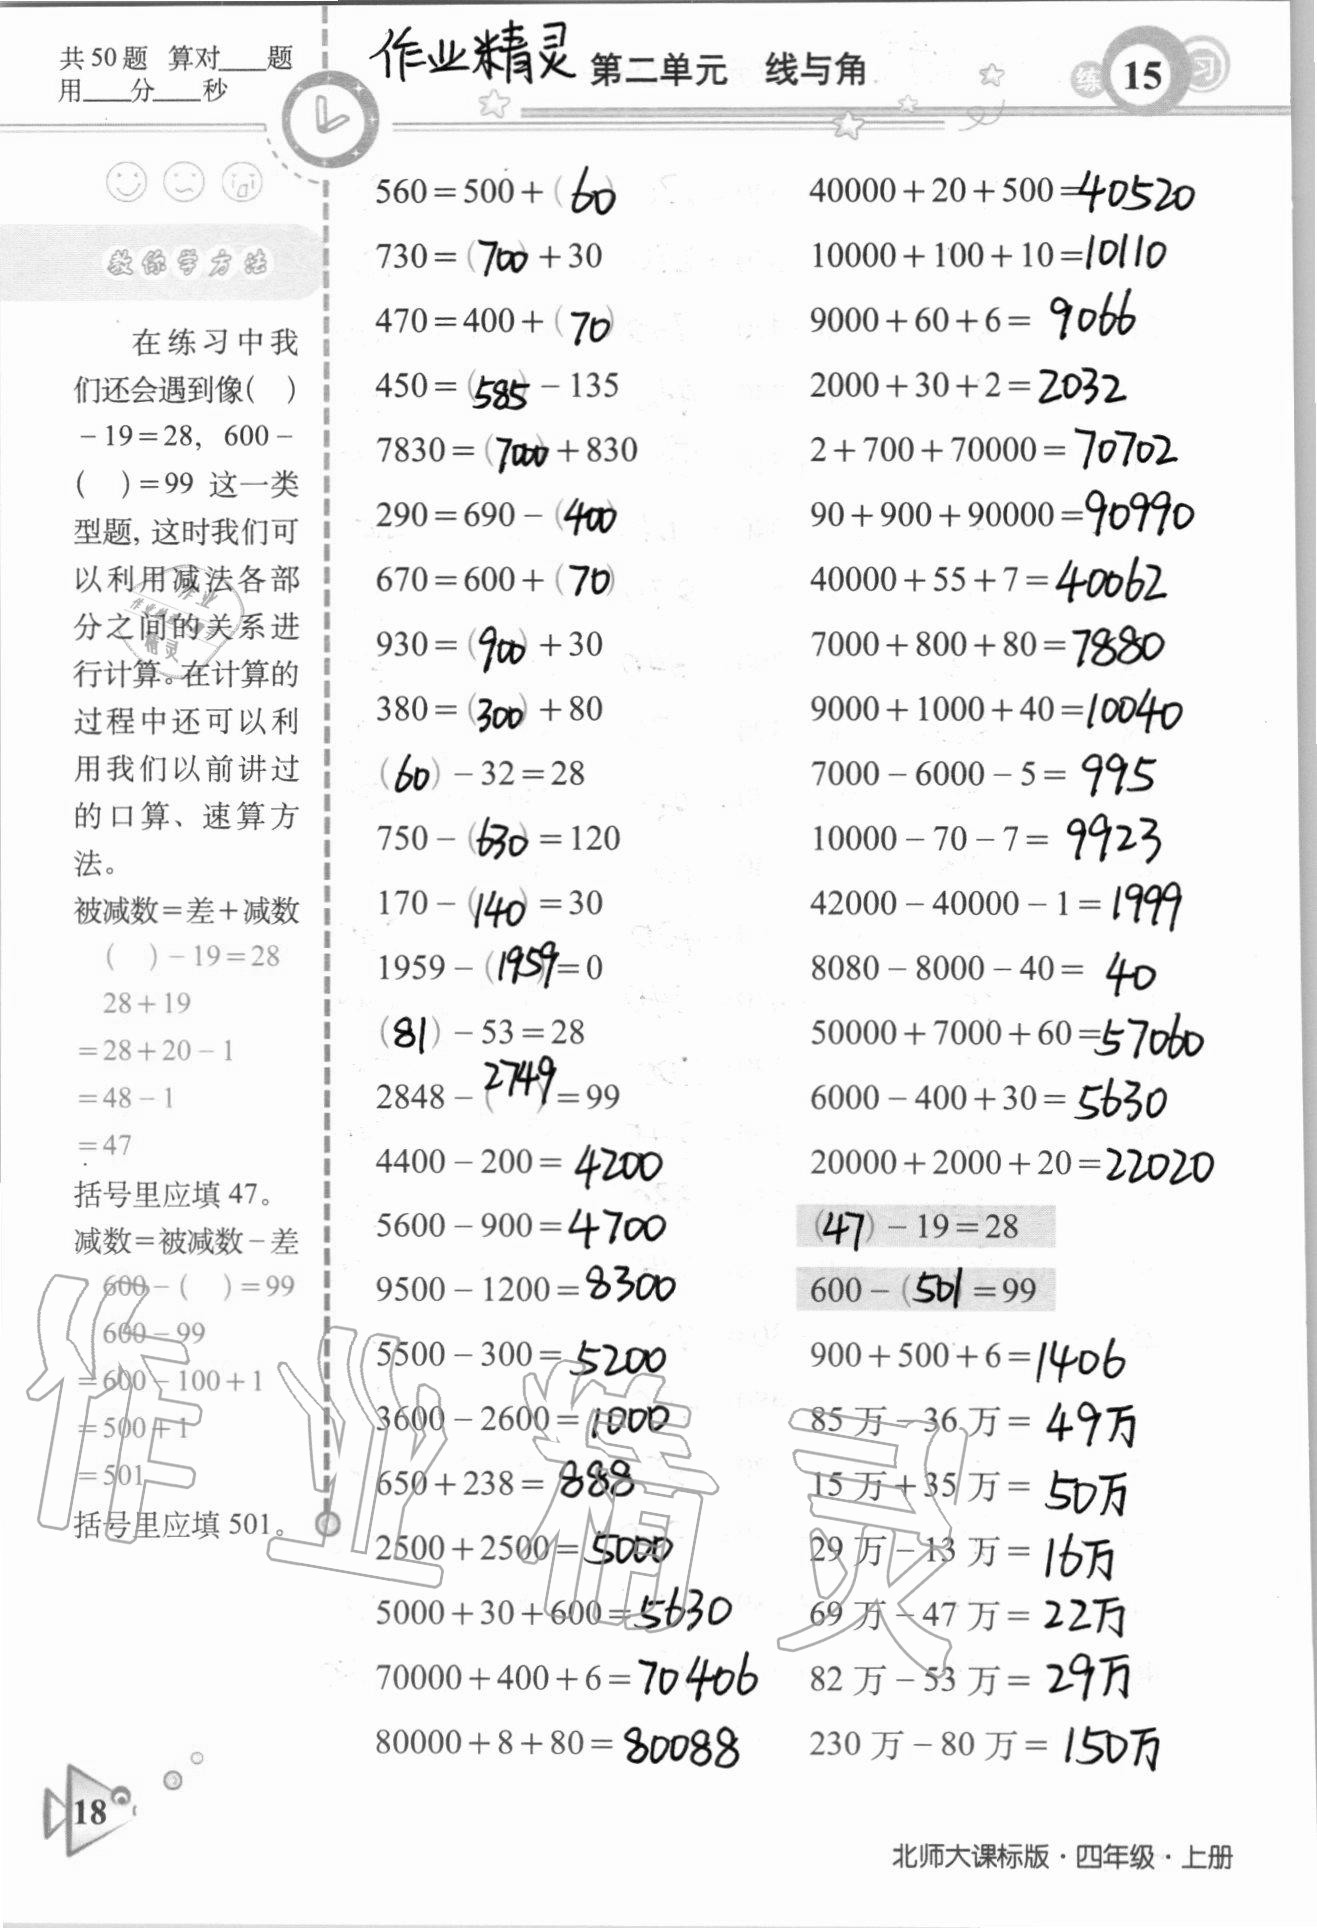 共50题 算对____题
用____分____秒
作业精灵
第二单元 线与角
练 15 习
教你学方法
在练习中我
们还会遇到像( )
－19=28, 600－
( )=99 这一类
型题, 这时我们可
以利用减法各部
分之间的关系进
行计算。在计算的
过程中还可以利
用我们以前讲过
的口算、速算方
法。
被减数=差+减数
( )－19=28
28+19
=28+20－1
=48－1
=47
括号里应填 47。
减数=被减数－差
600－( )=99
600－99
=600－100+1
=500+1
=501
括号里应填 501。
560=500+(60)
730=(700)+30
470=400+(70)
450=(585)－135
7830=(7000)+830
290=690－(400)
670=600+(70)
930=(900)+30
380=(300)+80
(60)－32=28
750－(630)=120
170－(140)=30
1959－(1959)=0
(81)－53=28
2848－(2749)=99
4400－200=4200
5600－900=4700
9500－1200=8300
5500－300=5200
3600－2600=1000
650+238=888
2500+2500=5000
5000+30+600=5630
70000+400+6=70406
80000+8+80=80088
40000+20+500=40520
10000+100+10=10110
9000+60+6=9066
2000+30+2=2032
2+700+70000=70702
90+900+90000=90990
40000+55+7=40062
7000+800+80=7880
9000+1000+40=10040
7000－6000－5=995
10000－70－7=9923
42000－40000－1=1999
8080－8000－40=40
50000+7000+60=57060
6000－400+30=5630
20000+2000+20=22020
(47)－19=28
600－(501)=99
900+500+6=1406
85万－36万=49万
15万+35万=50万
29万－13万=16万
69万－47万=22万
82万－53万=29万
230万－80万=150万
作业精灵
18
北师大课标版·四年级·上册